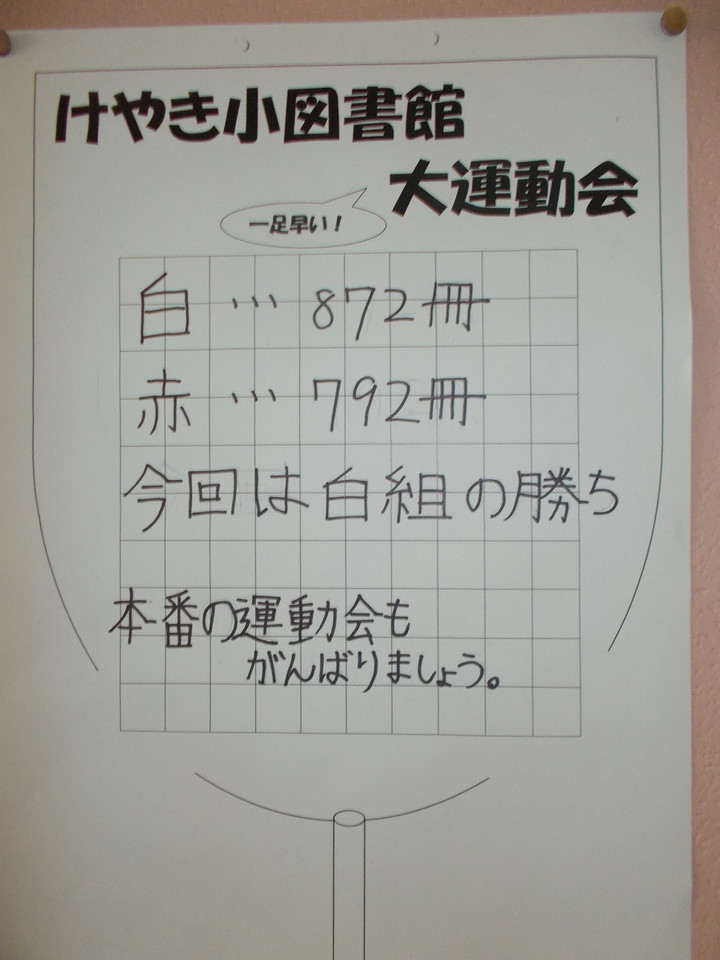 けやき小図書館
大運動会
一足早い！
白…872冊
赤…792冊
今回は白組の勝ち
本番の運動会も
がんばりましょう。